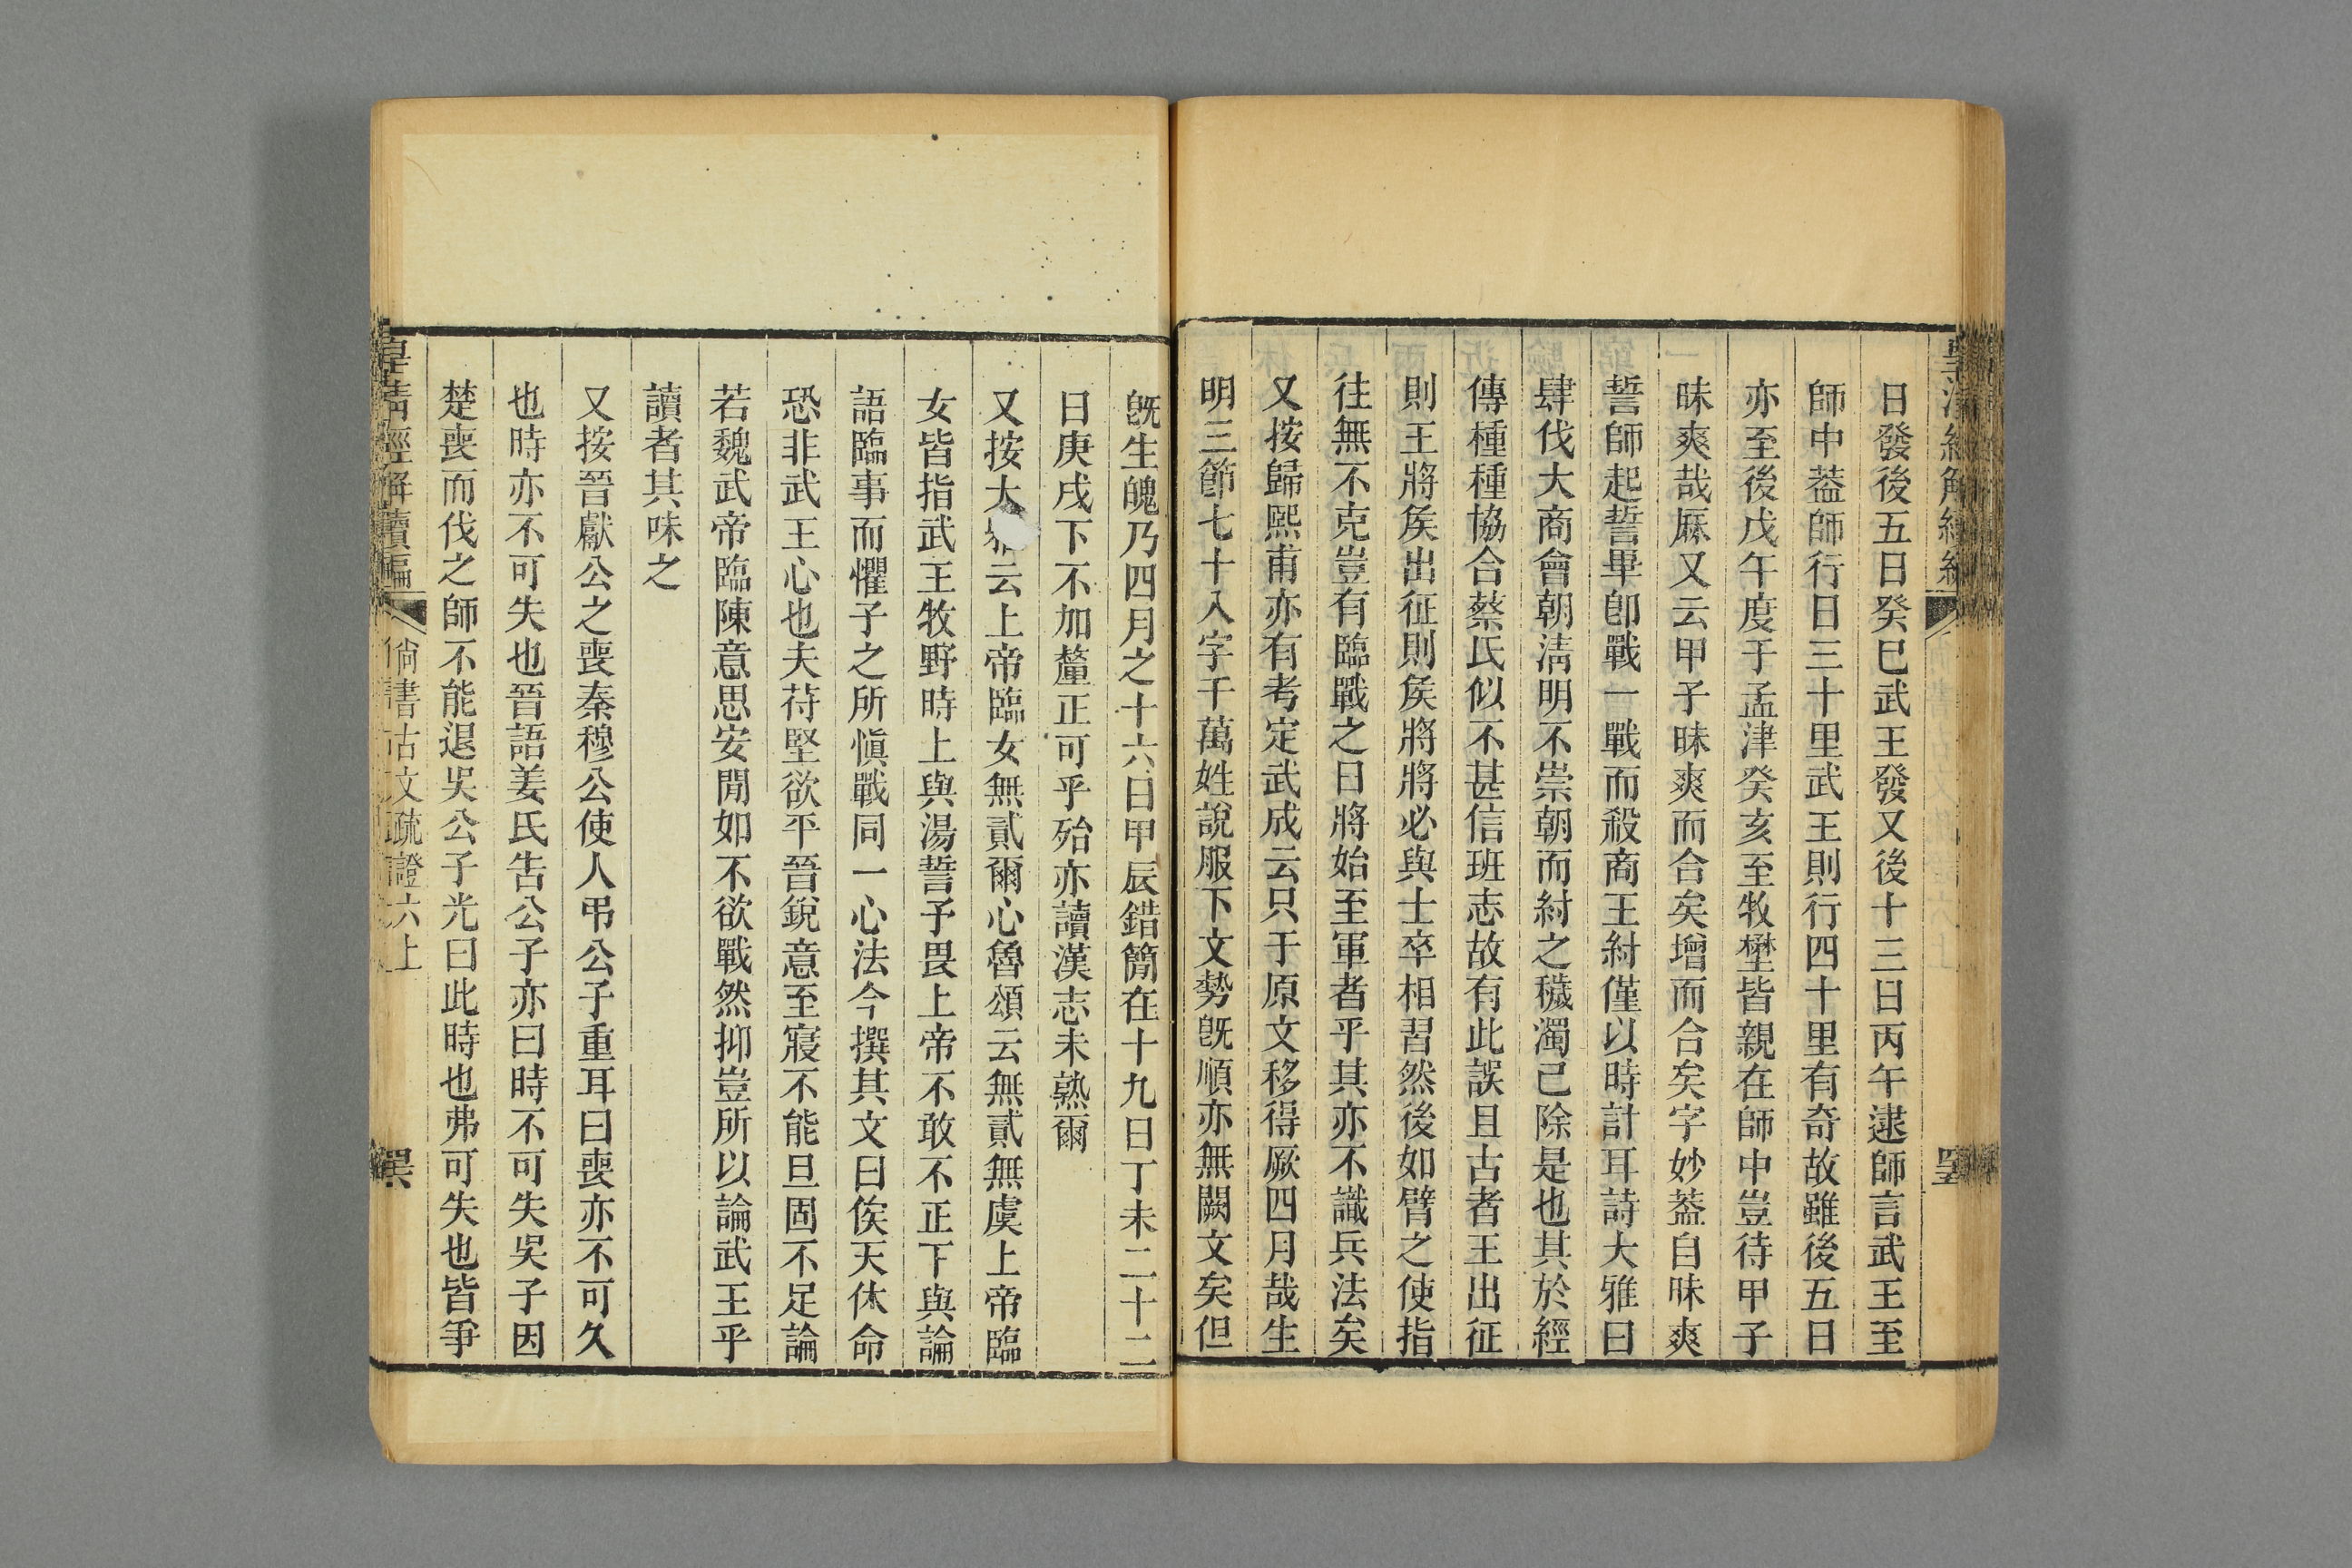 日發後五日癸巳武王發又後十三日丙午逮師言武王至
師中葢師行日三十里武王則行四十里有奇故雖後五日
亦至後戊午度于孟津癸亥至牧壄皆親在師中豈待甲子
昧爽哉厤又云甲子昧爽而合矣增而合矣字妙葢自昧爽
誓師起誓畢卽戰一戰而殺商王紂僅以時計耳詩大雅曰
肆伐大商會朝淸明不崇朝而紂之穢濁已除是也其於經
傳種種協合蔡氏似不甚信班志故有此誤且古者王出征
則王將矦出征則矦將將必與士卒相習然後如臂之使指
往無不克豈有臨戰之日將始至軍者乎其亦不識兵法矣
又按歸熙甫亦有考定武成云只于原文移得厥四月哉生
明三節七十八字于萬姓說服下文勢旣順亦無闕文矣但
旣生魄乃四月之十六日甲辰錯簡在十九日丁未二十二
日庚戌下不加釐正可乎殆亦讀漢志未熟爾
又按大雅云上帝臨女無貳爾心魯頌云無貳無虞上帝臨
女皆指武王牧野時上與湯誓予畏上帝不敢不正下與論
語臨事而懼子之所愼戰同一心法今撰其文曰俟天休命
恐非武王心也夫苻堅欲平晉銳意至寢不能旦固不足論
若魏武帝臨陳意思安閒如不欲戰然抑豈所以論武王乎
讀者其味之
又按晉獻公之喪秦穆公使人弔公子重耳曰喪亦不可久
也時亦不可失也晉語姜氏告公子亦曰時不可失吳子因
楚喪而伐之師不能退吳公子光曰此時也弗可失也皆爭
皇淸經解續編
尙書古文疏證六上